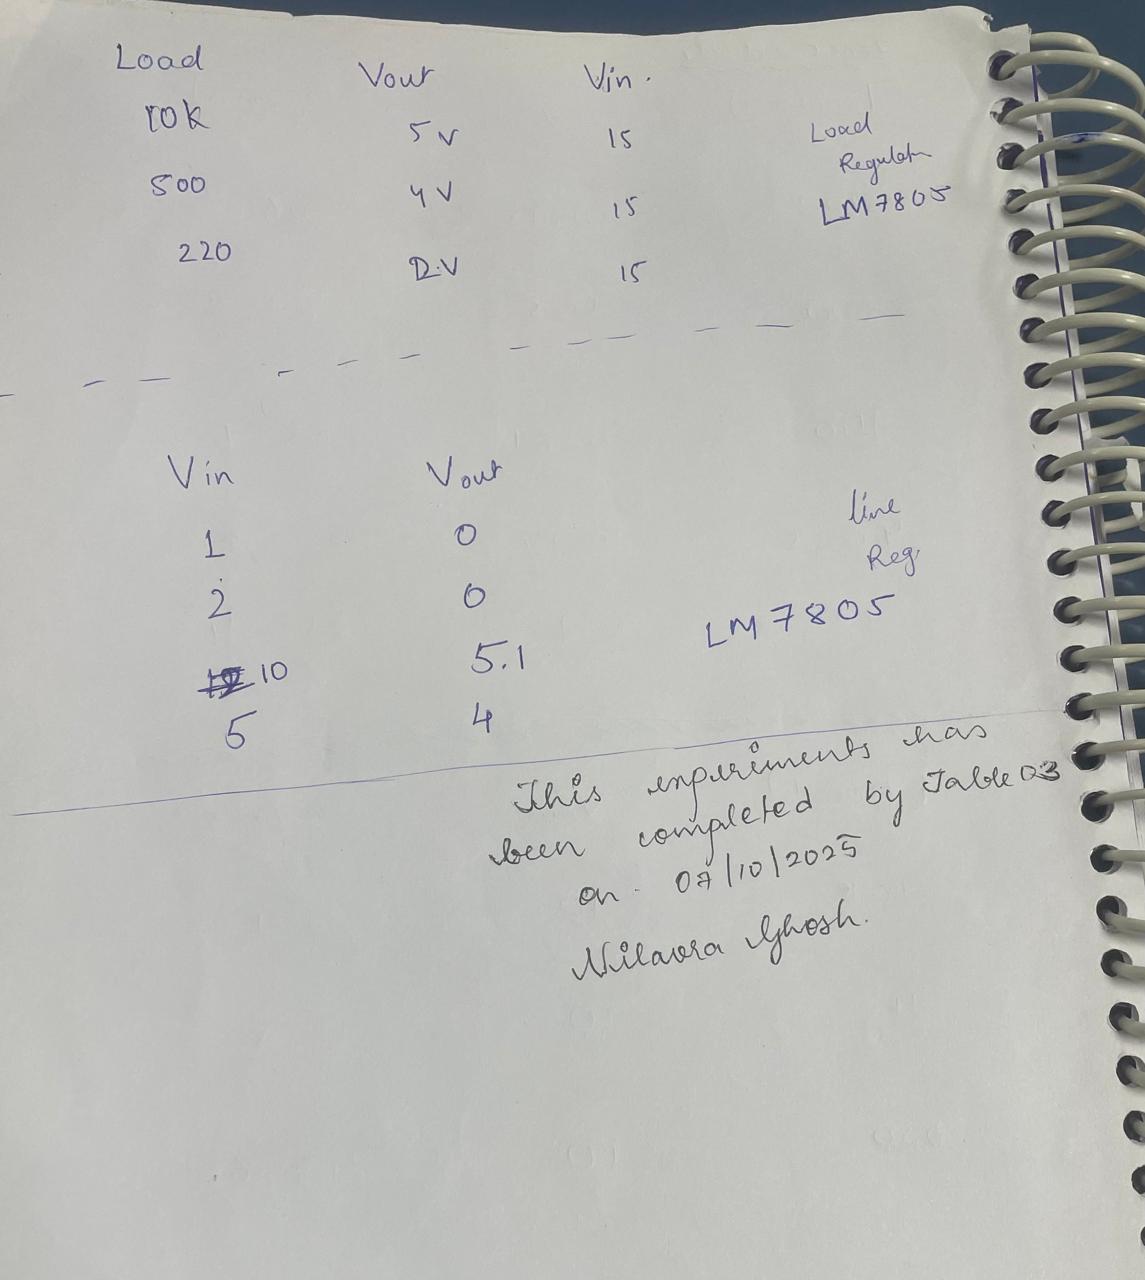 Load Vout Vin.
10k 5V 15
500 4V 15
220 2.V 15
Load
Regulatn
LM7805
Vin Vout
1 0
2 0
10 5.1
5 4
line
Reg.
LM7805
This experiments has
been completed by Table 03
on. 07/10/2025
Nilavra Ghosh.